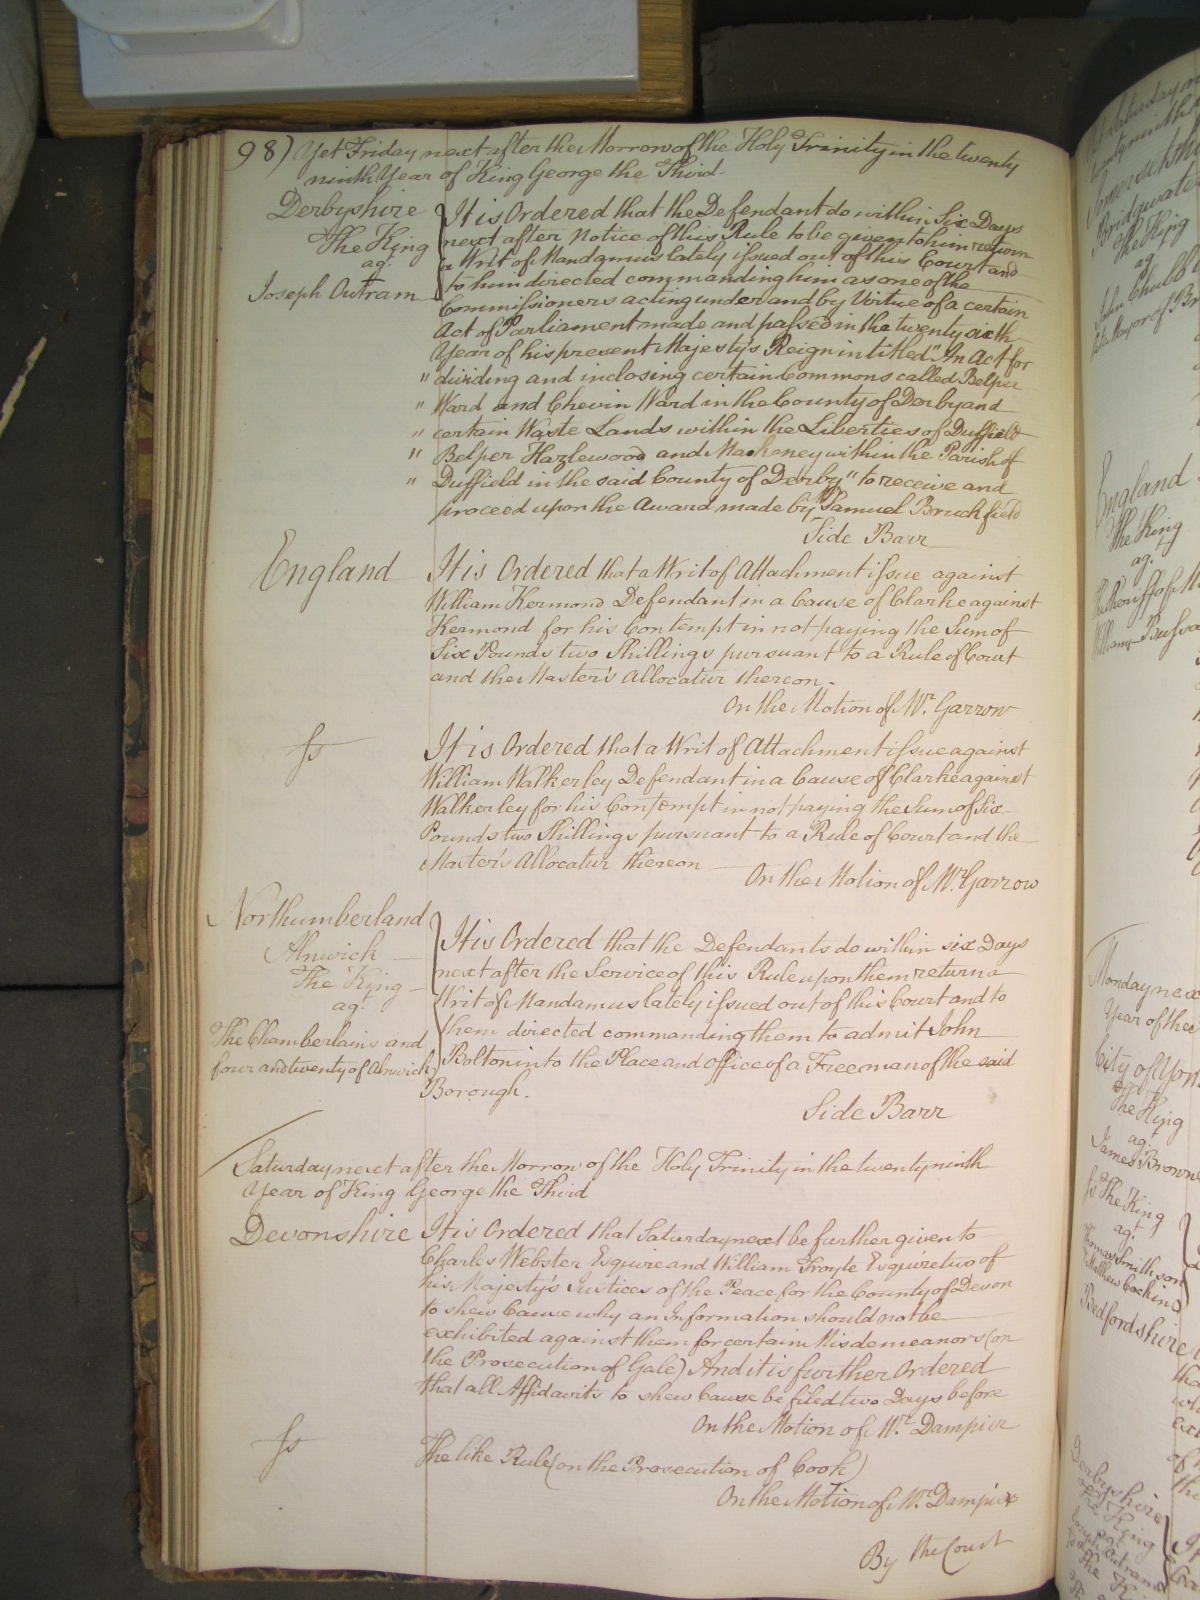 98) Yet Friday next after the Morrow of the Holy Trinity in the twenty
ninth Year of King George the Third
Derbyshire
The King
ag.t
Joseph Outram
It is Ordered that the Defendant do within Six Days
next after Notice of this Rule to be given to him return
a Writ of Mandamus lately issued out of this Court and
to him directed commanding him as one of the
Commissioners acting under and by Virtue of a certain
Act of Parliament made and passed in the twenty sixth
Year of his present Majesty's Reign intitled "An Act for
" dividing and inclosing certain Commons called Belper
" Ward and Chevin Ward in the County of Derby and
" certain Waste Lands within the Liberties of Duffield
" Belper Hazlewood and Makeney within the Parish of
" Duffield in the said County of Derby" to receive and
proceed upon the Award made by Samuel Bruckfield
Side Barr
England
It is Ordered that a Writ of Attachment issue against
William Kermond Defendant in a Cause of Clarke against
Kermond for his Contempt in not paying the Sum of
Six Pounds two Shillings pursuant to a Rule of Court
and the Master's Allocatur thereon.
On the Motion of Mr. Garrow
fs
It is Ordered that a Writ of Attachment issue against
William Walkerley Defendant in a Cause of Clarke against
Walkerley for his Contempt in not paying the Sum of Six
Pounds two Shillings pursuant to a Rule of Court and the
Master's Allocatur thereon
On the Motion of Mr. Garrow
Northumberland
Alnwick
The King
ag.t
The Chamberlains and
four and twenty of Alnwick
It is Ordered that the Defendants do within six Days
next after the Service of this Rule upon them return a
Writ of Mandamus lately issued out of this Court and to
them directed commanding them to admit John
Bolton into the Place and Office of a Freeman of the said
Borough.
Side Barr
Saturday next after the Morrow of the Holy Trinity in the twenty ninth
Year of King George the Third
Devonshire
It is Ordered that Saturday next be further given to
Charles Webster Esquire and William Froyle Esquire two of
his Majesty's Justices of the Peace for the County of Devon
to shew Cause why an Information should not be
exhibited against them for certain Misdemeanors (on
the Prosecution of Gale) And it is further Ordered
that all Affidavits to shew Cause be filed two Days before
On the Motion of Mr. Dampier
fs
The like Rule (on the Prosecution of Cook)
On the Motion of Mr. Dampier
By the Court
Somersetshire
Bridgwater
The King
ag.t
John Chubb
England
The King
ag.t
William
Monday next
Year of the
City of York
The King
ag.t
James Browne
fs The King
ag.t
Thomas Smithson
Matthew Cocking
Bedfordshire
Derbyshire
The King
ag.t
Joseph Outram